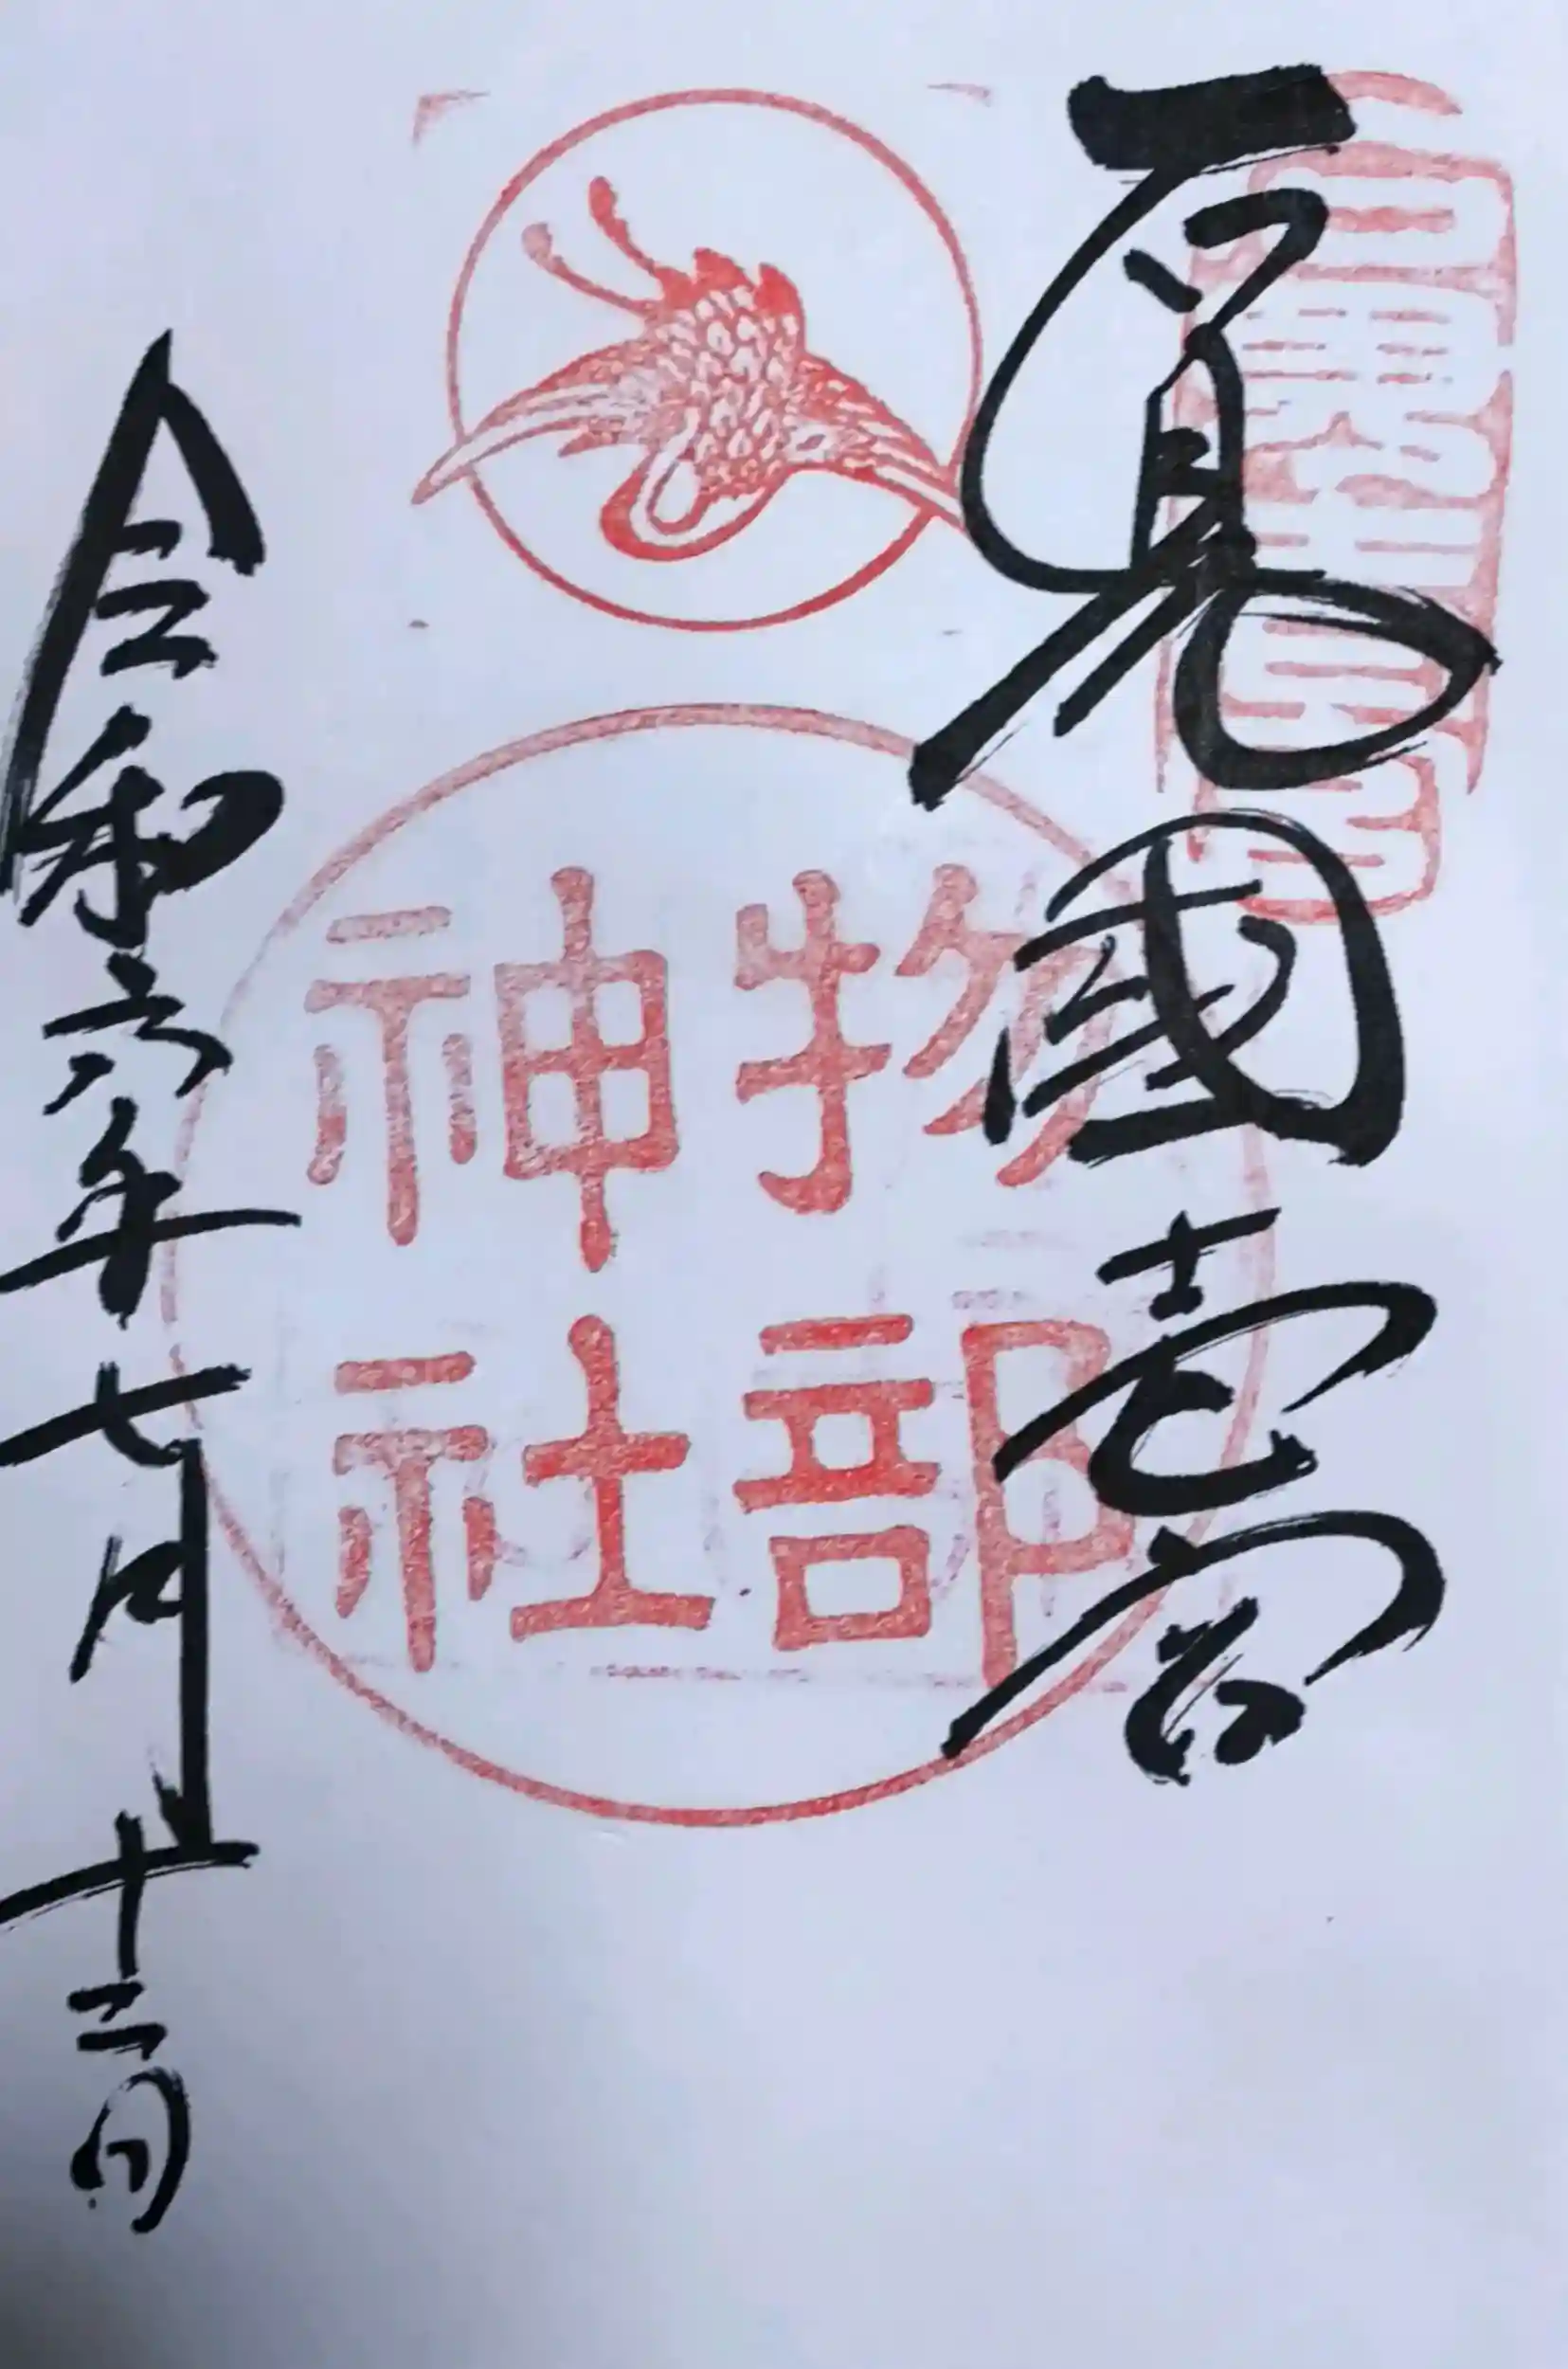 石見國壱宮
物部
神社
令和六年七月十二日